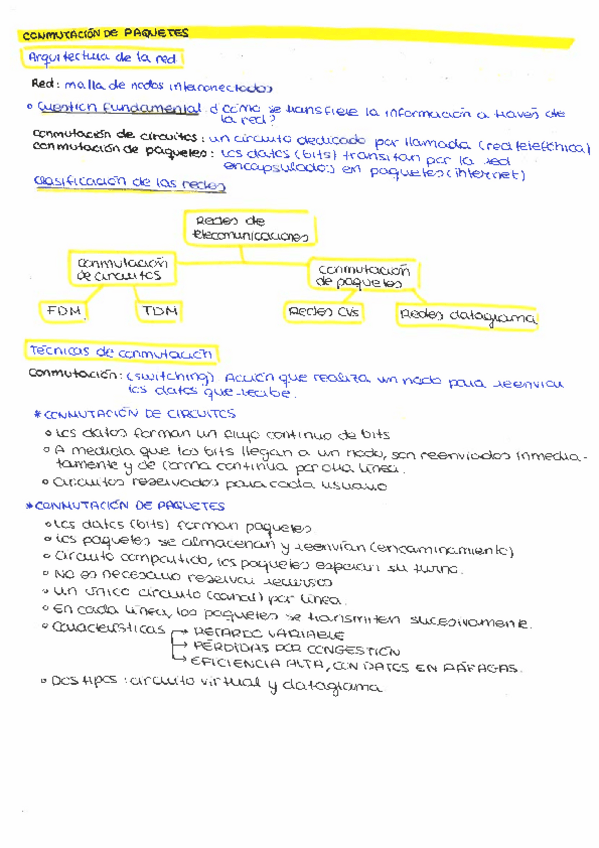 CONMUTACIÓN DE PAQUETES
Arquitectura de la red
Red: malla de nodos interconectados
Cuestión fundamental ¿cómo se transfiere la información a través de
la red?
conmutación de circuitos: un circuito dedicado por llamada (red telefónica)
conmutación de paquetes: los datos (bits) transitan por la red
encapsulados en paquetes (internet)
Clasificación de las redes
Redes de
telecomunicaciones
conmutación
de circuitos
conmutación
de paquetes
FDM
TDM
Redes CVs
Redes datagrama
Técnicas de conmutación
Conmutación: (switching) Acción que realiza un nodo para reenviar
los datos que recibe.
*CONMUTACIÓN DE CIRCUITOS
Los datos forman un flujo continuo de bits
A medida que los bits llegan a un nodo, son reenviados inmedia-
tamente y de forma continua por otra línea.
Circuitos reservados para cada usuario
*CONMUTACIÓN DE PAQUETES
Los datos (bits) forman paquetes
Los paquetes se almacenan y reenvían (encaminamiento)
Circuito compartido, los paquetes esperan su turno.
No es necesario reservar recursos
Un único circuito (canal) por línea.
En cada línea, los paquetes se transmiten sucesivamente.
Características → RETARDO VARIABLE
→ PÉRDIDAS POR CONGESTIÓN
→ EFICIENCIA ALTA, CON DATOS EN RÁFAGAS.
Dos tipos: circuito virtual y datagrama